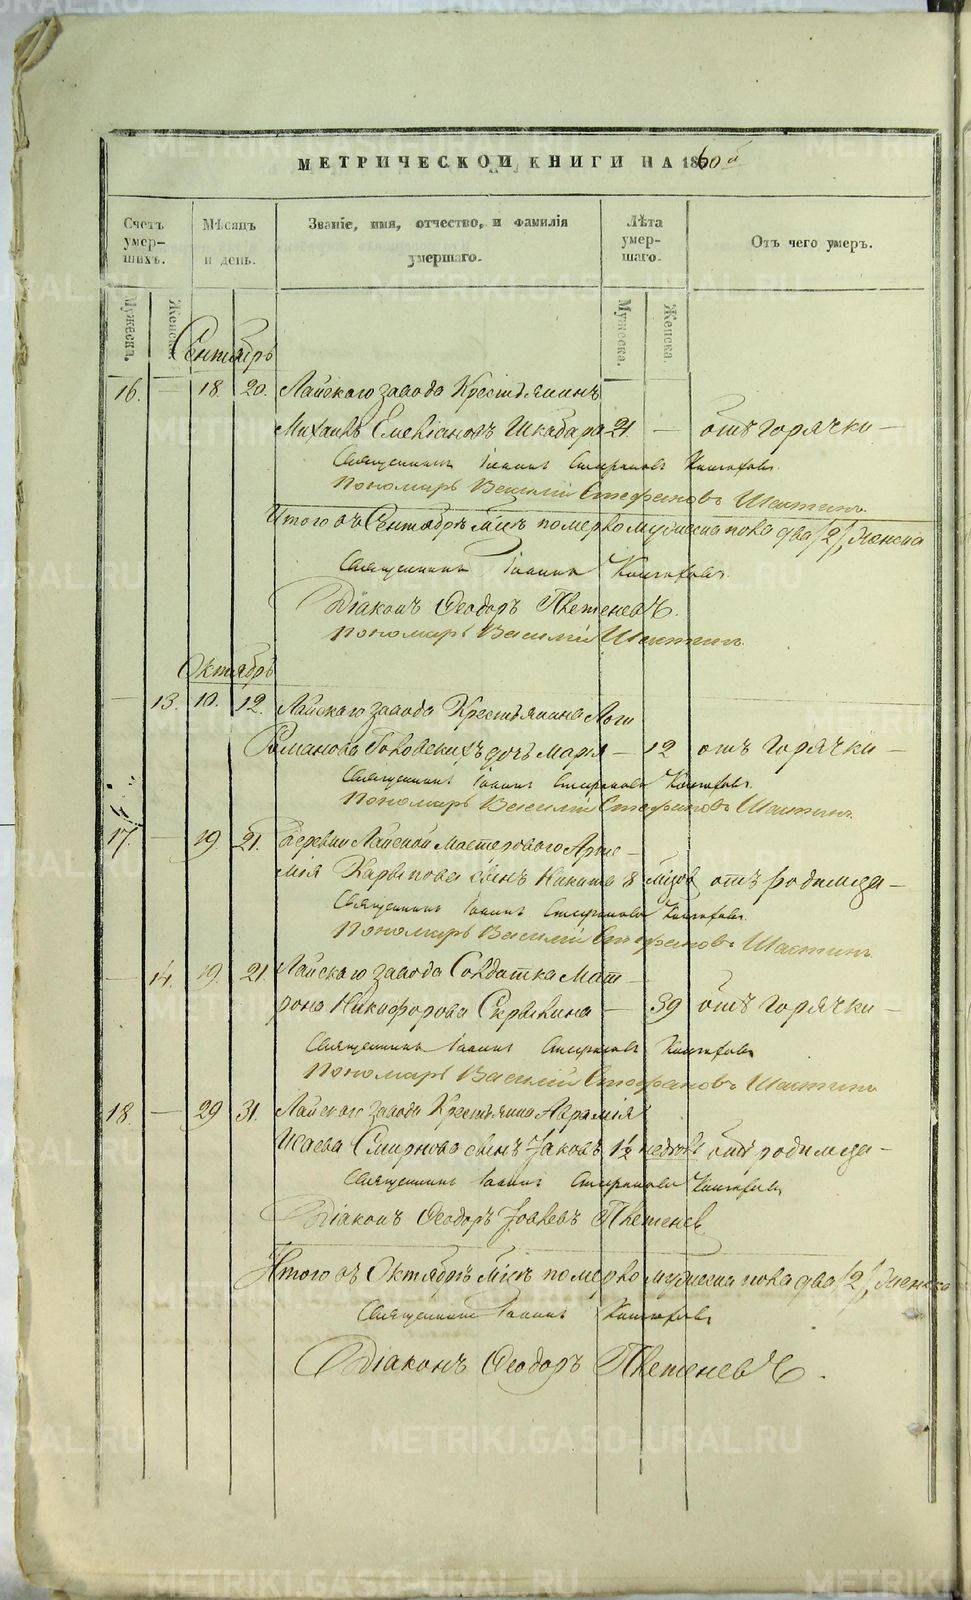 МЕТРИЧЕСКОЙ КНИГИ НА 1860й
Счетъ умер- шихъ.
Мѣсяцъ и день.
Званіе, имя, отчество, и фамилія умершаго.
Лѣта умер- шаго.
Отъ чего умеръ.
Мужеска. Женска.
Мужеска. Женска.
Сентябрь
16. — 18. 20. Лайскаго завода Крестьянинъ
Михаилъ Емеліановъ Шкабара 21. — отъ горячки —
Священникъ Іоаннъ Стефановъ
Пономарь Василій Стефановъ Шастинъ.
Итого въ Сентябрѣ мѣсяцѣ померло мужеска пола два /2/, женска
Священникъ Іоаннъ
Діаконъ Ѳеодоръ Плетеневъ.
Пономарь Василій Шастинъ.
Октябрь
— 13. 10. 12. Лайскаго завода Крестьянина
Романова дочь Марія — 12 отъ горячки —
Священникъ Іоаннъ Стефановъ
Пономарь Василій Стефановъ Шастинъ.
17. — 19 21. Деревни Лайской Мастероваго Арте-
мія Карпова сынъ Никита 8 мѣсяцовъ отъ родимца —
Священникъ Іоаннъ Стефановъ
Пономарь Василій Стефановъ Шастинъ.
— 14. 19. 21 Лайскаго завода Солдатка Мат-
рона Никифорова — 39 отъ горячки —
Священникъ Іоаннъ Стефановъ
Пономарь Василій Стефановъ Шастинъ
18. — 29 31. Лайскаго завода Крестьянина Аврамія
Исаева Смирнова сынъ Іаковъ 1½ недѣль отъ родимца —
Священникъ Іоаннъ Стефановъ
Діаконъ Ѳеодоръ Іовлевъ Плетеневъ
Итого въ Октябрѣ мѣсяцѣ померло мужеска пола два /2/, женска
Священникъ Іоаннъ
Діаконъ Ѳеодоръ Плетеневъ.
METRIKI.GASO-URAL.RU